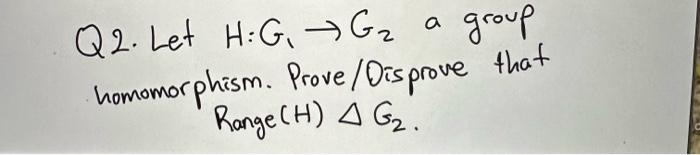 Q2. Let H:G₁ → G₂ a group
homomorphism. Prove/Disprove that
Range(H) Δ G₂.